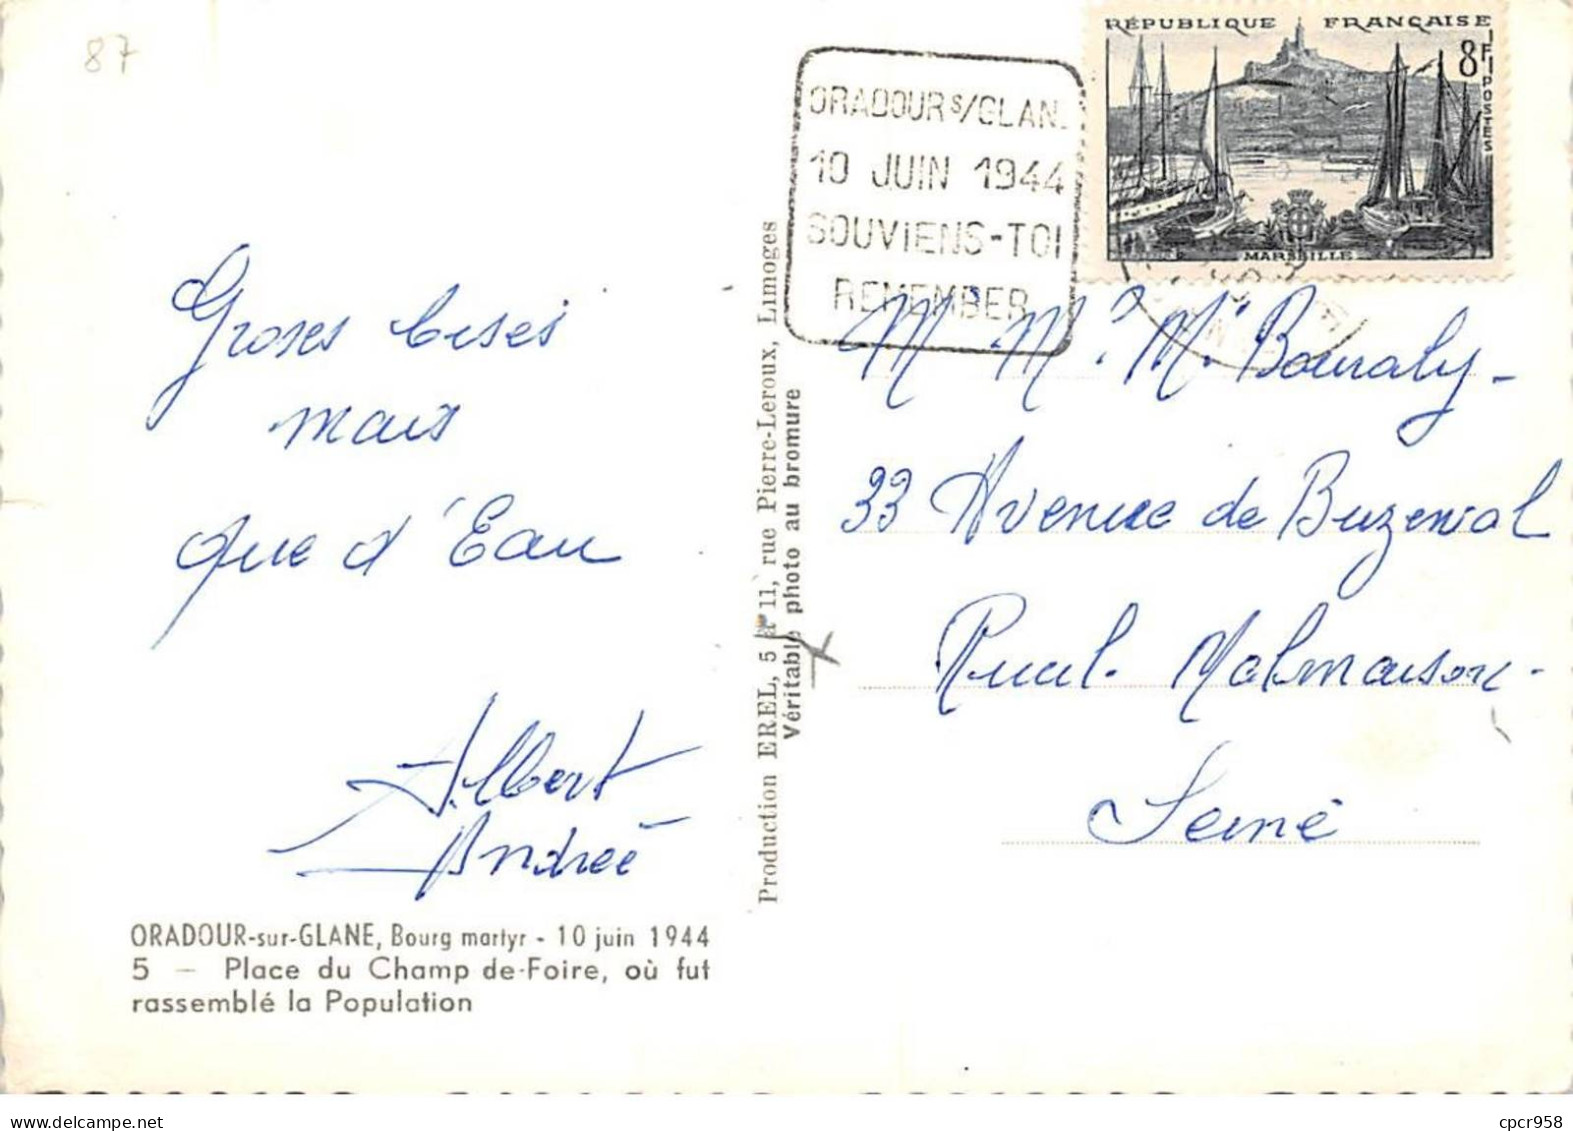 87
ORADOUR S/GLANE
10 JUIN 1944
SOUVIENS-TOI
REMEMBER
RÉPUBLIQUE FRANÇAISE
8F
POSTES
MARSEILLE
Groses bises
mais
que d'Eau
Albert
Andreé
ORADOUR-sur-GLANE, Bourg martyr - 10 juin 1944
5 — Place du Champ de-Foire, où fut
rassemblé la Population
Production EREL, 5 à 11, rue Pierre-Leroux, Limoges
Véritable photo au bromure
M. Me. Mr Bouraly -
33 Avenue de Buzenval
Rueil. Malmaison -
Seine
cpcr958